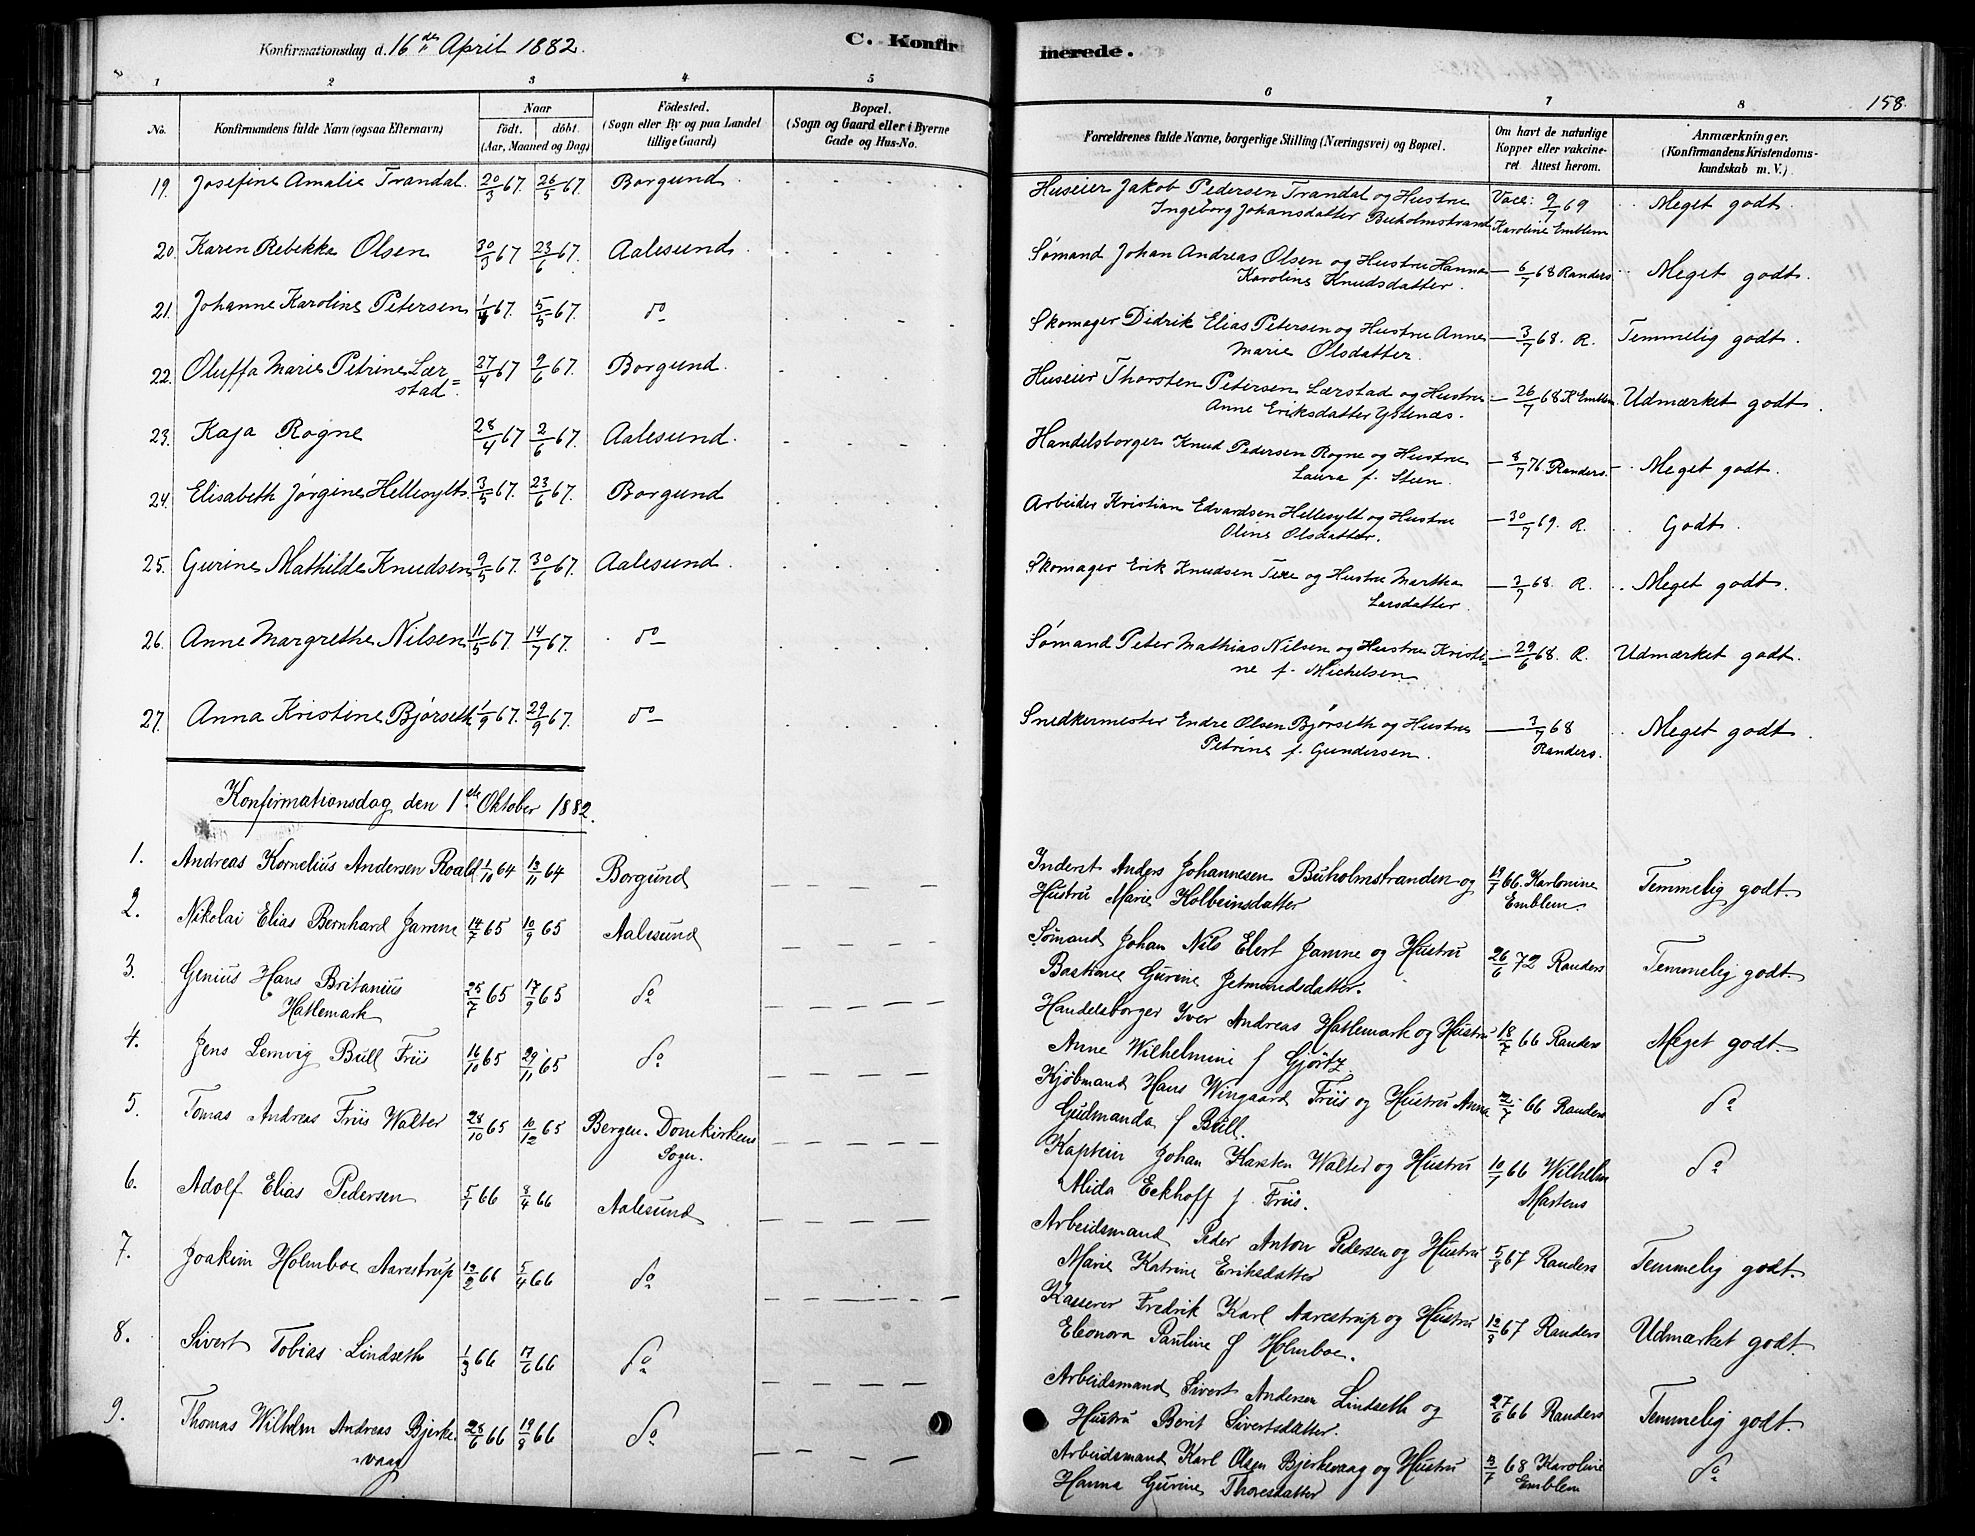 Konfirmationsdag d. 16de April 1882. C. Konfirmerede. 158.
1 2 3 4 5 6 7 8
No. Konfirmandens fulde Navn (ogsaa Efternavn) Naar født. døbt. (Aar, Maaned og Dag) Födested. (Sogn eller By og paa Landet tillige Gaard) Bopæl. (Sogn og Gaard eller i Byerne Gade og Hus-No. Forældrenes fulde Navne, borgerlige Stilling (Næringsvei) og Bopæl. Om havt de naturlige Kopper eller vakcineret. Attest herom. Anmærkninger. (Konfirmandens Kristendomskundskab m. V.)
19. Josefine Amalie Trandal. 20/3 67. 26/5 67. Borgund. Huseier Jakob Pedersen Trandal og Hustru Vacc: 9/7 69 Meget godt.
Ingeborg Johansdatter Buholmstrand Karoline Emblem
20. Karen Rebekke Olsen 30/3 67 23/6 67. Aalesund. Sømand Johan Andreas Olsen og Hustru Hanna — 6/7 68 Randers Meget godt.
Karoline Knudsdatter.
21. Johanne Karoline Petersen 1/4 67. 5/5 67. do Skomager Didrik Elias Petersen og Hustru Anne — 3/7 68. R. Temmelig godt.
Marie Olsdatter.
22. Oluffa Marie Petrine Lær= 27/4 67 2/6 67. Borgund. Huseier Thorsten Petersen Lærstad og Hustru — 26/7 68 K Emblem Udmærket godt.
stad Anne Eriksdatter Ystenæs.
23. Kaja Rogne 28/4 67 2/6 67. Aalesund. Handelsborger Knud Pedersen Rogne og Hustru — 8/7 76 Randers. Meget godt.
Laura f. Steen.
24. Elisabeth Jørgine Hellesylt 3/5 67. 23/6 67. Borgund Arbeider Kristian Edvardsen Hellesylt og Hustru — 30/7 69. R. Godt.
Oline Olsdatter.
25. Gurine Mathilde Knudsen 9/5 67. 30/6 67. Aalesund. Skomager Erik Knudsen og Hustru Martha — 3/7 68. R. Meget godt.
Larsdatter.
26. Anne Margrethe Nilsen 11/5 67 14/7 67. do Sømand Peter Mathias Nilsen og Hustru Kristi= — 29/6 68. R. Udmærket godt.
ne f. Michelsen.
27. Anna Kristine Bjørseth 1/9 67. 29/9 67. do Snedkermester Endre Olsen Bjørseth og Hustru — 3/7 68 Meget godt.
Petrine f. Gundersen. Randers.
Konfirmationsdag den 1ste Oktober 1882.
1. Andreas Kornelius Andersen Roald 1/10 64 13/11 64 Borgund Inderst Anders Johannesen Buholmstranden og 19/7 66. Karlonine Temmelig godt.
Hustru Marie Kolbeinsdatter Emblem.
2. Nikolai Elias Bernhard Jamne 14/7 65 10/9 65 Aalesund Sømand Johan Nils Elert Jamne og Hustru 26/6 72 Randers Temmelig godt
Bastiane Gurine Jetmundsdatter.
3. Genius Hans Britanius 25/7 65 17/9 65 do Handelsborger Iver Andreas Hatlemark og Hustru 18/7 66 Randers Meget godt.
Hatlemark Anne Wilhelmine f Gjørtz.
4. Jens Lemvig Bull Friis 16/10 65 29/11 65 do Kjøbmand Hans Wingaard Friis og Hustru Anna 66 Randers do
Gudmanda f Bull.
5. Tomas Andreas Friis Walter 28/10 65 10/12 65 Bergen. Domkirkens Kaptein Johan Karsten Walter og Hustru 10/7 66 Wilhelm do
Sogn. Alida Eckhoff f. Friis. Mastens
6. Adolf Elias Pedersen 5/1 66 8/4 66 Aalesund Arbeidsmand Peder Anton Pedersen og Hustru 5/8 67 Randers Temmelig godt.
Marie Katrine Eriksdatter
7. Joakim Holmboe Aarestrup 12/2 66 5/4 66 do Kasserer Fredrik Karl Aarestrup og Hustru 12/8 67 Randers Udmærket godt.
Eleonora Pauline f Holmboe.
8. Sivert Tobias Lindseth 1/3 66 17/6 66 do Arbeidsmand Sivert Andersen Lindseth og 27/6 66 Randers Temmelig godt.
Hustru Berit Sivertsdatter.
9. Thomas Wilhelm Andreas Bjerke- 28/6 66 19/8 66 do Arbeidsmand Karl Olsen Bjerkevaag og Hustru 68 Karoline do
vaag Hanna Gurine Thoresdatter Emblem